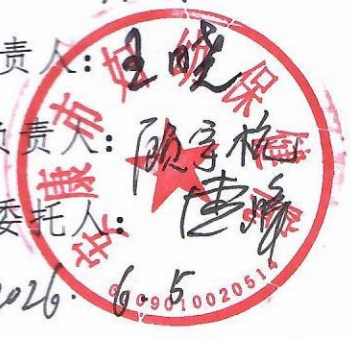 责人：王晓
负责人：顾字格
委托人：
2026.6.5
安康市妇幼保健院
6109010020514